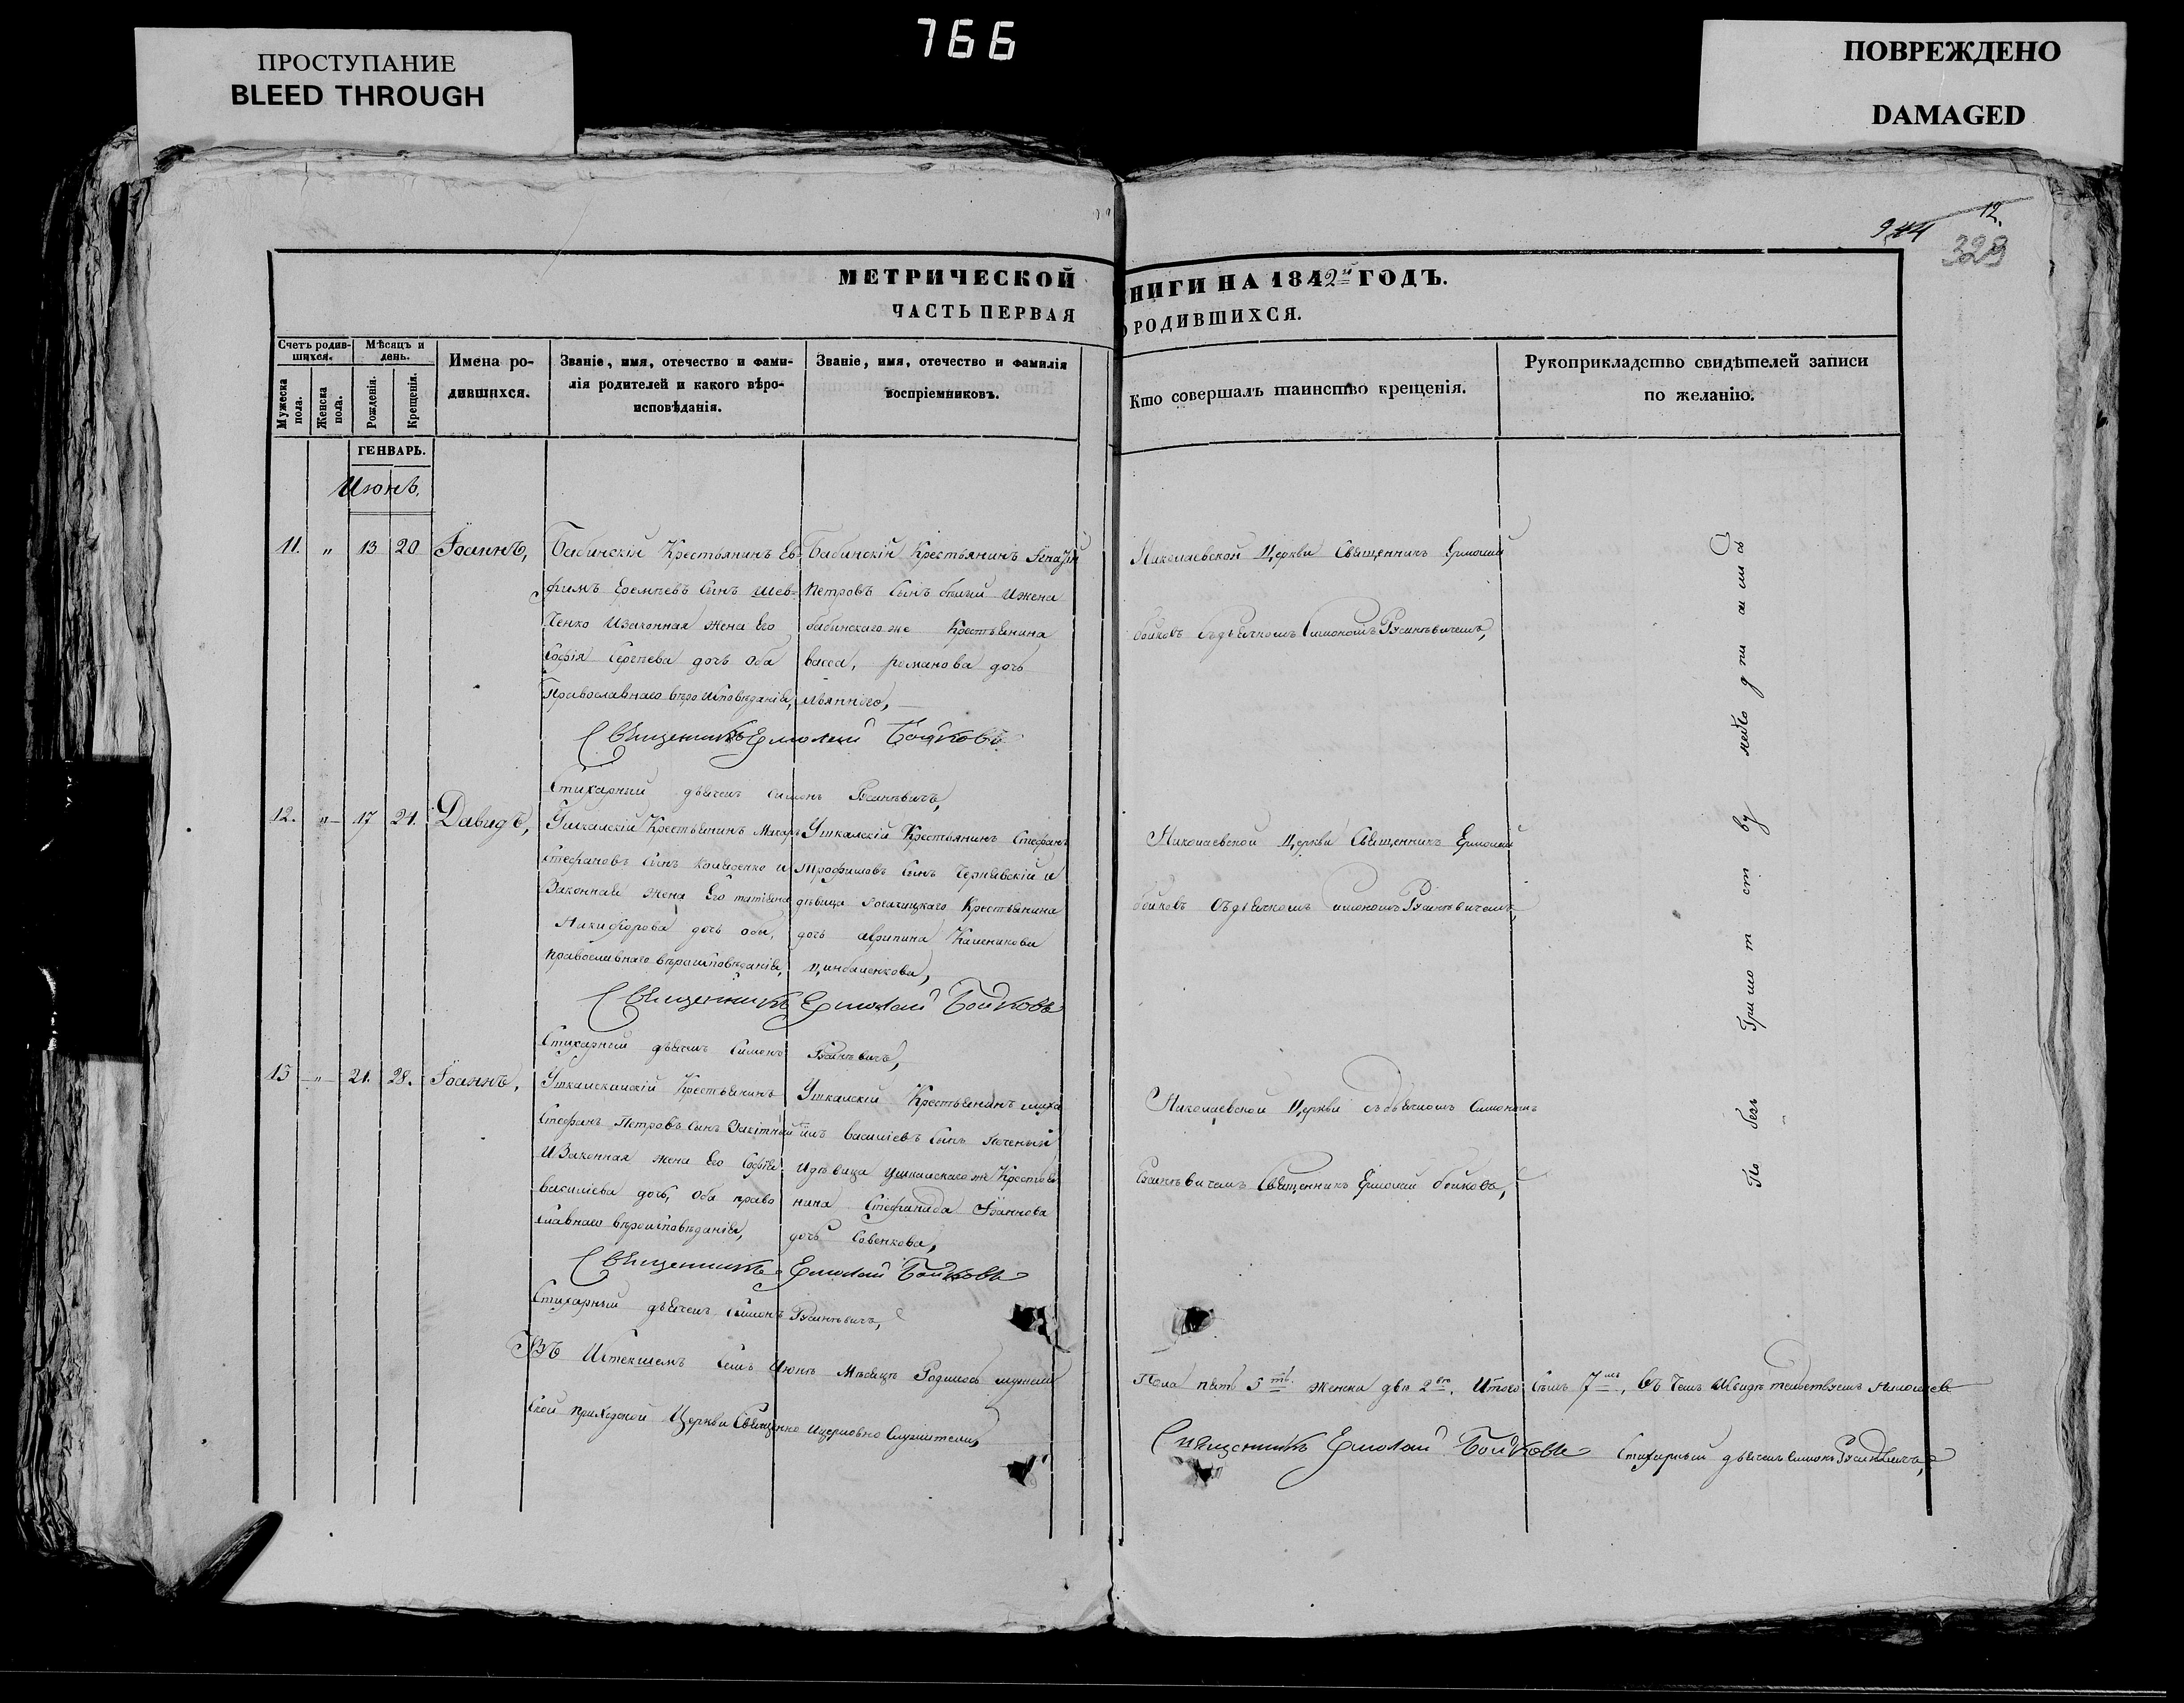 766
ПРОСТУПАНИЕ
BLEED THROUGH
ПОВРЕЖДЕНО
DAMAGED
12
329
МЕТРИЧЕСКОЙ
НИГИ НА 1842й ГОДЪ.
ЧАСТЬ ПЕРВАЯ
О РОДИВШИХСЯ.
Счетъ родив-
шихся.
Мужеска
пола.
Женска
пола.
Мѣсяцъ и
день.
Рожденія.
Крещенія.
Имена ро-
дившихся.
Званіе, имя, отечество и фами-
лія родителей и какого вѣро-
исповѣданія.
Званіе, имя, отечество и фамилія
воспріемниковъ.
Кто совершалъ таинство крещенія.
Рукоприкладство свидѣтелей записи
по желанію.
ГЕНВАРЬ.
Июнь.
11. " 13 20 Іоаннъ,
Бабинскій Крестьянинъ Ев-
фимъ Еремѣевъ Сынъ Шев-
ченко Изаконная жена Его
Софія Сергѣева дочь Оба
Православнаго вѣроисповѣданія,
Бабинскій Крестьянинъ Игнатій
Петровъ Сынъ бѣлый Ижена
бабинскагоже Крестьянина
васса, романова дочь
Николаевской Церкви Священникъ Ермолай
бойковъ Съдьячкомъ Симономъ
Священникъ Ермолай Бойковъ
Стихарный дьячекъ Симонъ
12. " 17 24. Давидъ,
Ушкалскій Крестьянинъ Макаръ
Стефановъ Сынъ и
Законная жена Его татіяна
Никифорова дочь оба,
православнаго вѣроисповѣданія,
Ушкалскій Крестьянинъ Стефанъ
Трофимовъ Сынъ Чернявскій и
дѣвица Рогачицкаго Крестьянина
дочь
Николаевской Церкви Священникъ Ермолай
бойковъ Съдьячкомъ симономъ
Священникъ Ермолай Бойковъ
Стихарный дьячекъ Симонъ
13 " 21. 28. Іоаннъ.
Крестьянинъ
Стефанъ Петровъ Сынъ
И Законная жена Его Софія
василіева дочь, Оба право
славнаго вѣроисповѣданія,
Ушкалскій Крестьянинъ миха
илъ василіевъ Сынъ Печеный
Идѣвица ушкалскагоже Крестья
нина Стефанида Іоаннова
дочь Совенкова,
Николаевской Церкви съдьячкомъ Симономъ
Священникъ Ермолай бойковъ,
Священникъ Ермолай Бойковъ
Стихарный дьячекъ Симонъ
Въ Истекшемъ Семъ Июнѣ Мѣсяцѣ Родилось мужеска
Пола пять 5ть. Женска двѣ 2вѣ. Итого Семь 7мь, Въ Чемъ Исвидѣтельствуемъ Николаев
Ской Приходской Церкви Священно Ицерковно Служители,
Священникъ Ермолай Бойковъ Стихарный дьячекъ симонъ